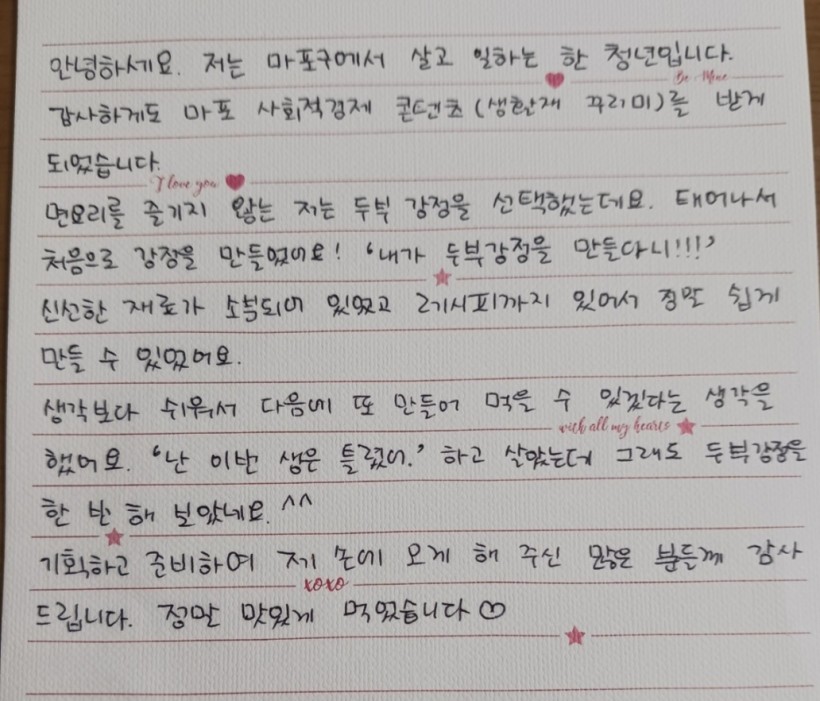 안녕하세요. 저는 마포구에서 살고 일하는 한 청년입니다.
Be Mine
감사하게도 마포 사회적경제 콘텐츠(생활재 꾸러미)를 받게
되었습니다.
I love you
면요리를 즐기지 않는 저는 두부 강정을 선택했는데요. 태어나서
처음으로 강정을 만들었어요! '내가 두부강정을 만들다니!!!'
신선한 재료가 소분되어 있었고 레시피까지 있어서 정말 쉽게
만들 수 있었어요.
생각보다 쉬워서 다음에 또 만들어 먹을 수 있겠다는 생각을
with all my hearts
했어요. '난 이번 생은 틀렸어.' 하고 살았는데 그래도 두부강정을
한 번 해 보았네요. ^^
기획하고 준비하여 제 손에 오게 해 주신 많은 분들께 감사
xoxo
드립니다. 정말 맛있게 먹었습니다♡